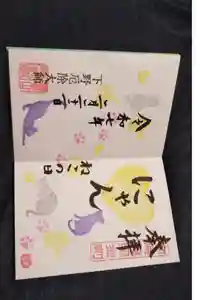 奉拝
にゃん
ねこの日
令和七年
二月二十二日
下野厄除大師